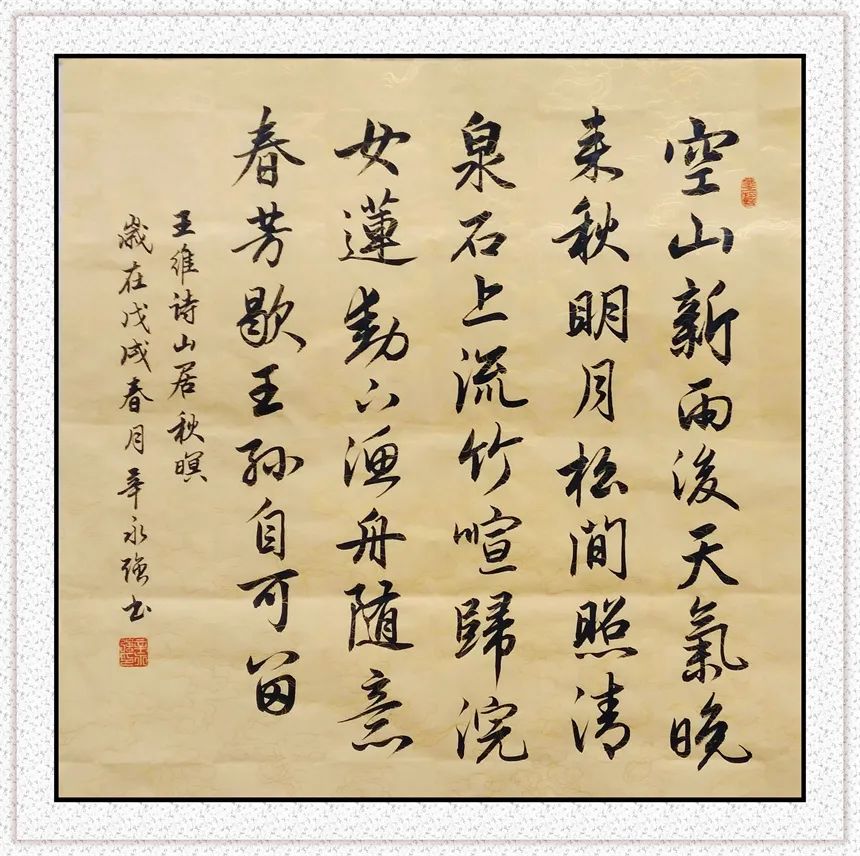 空山新雨後天氣晚
来秋明月松澗照清
泉石上流竹喧歸浣
女蓮動下漁舟随意
春芳歇王孫自可留
王維诗山居秋暝
歲在戊戌春月辛永强书